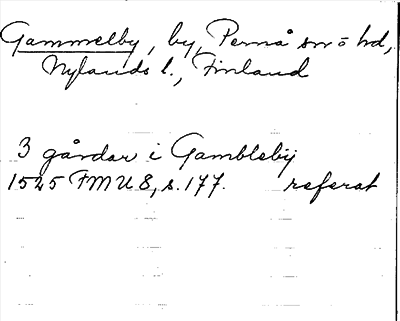 Gammelby, by, Pernå sn o hd,
Nylands l., Finland
3 gårdar i Gambleby
1525 FMU 8, s. 177. referat